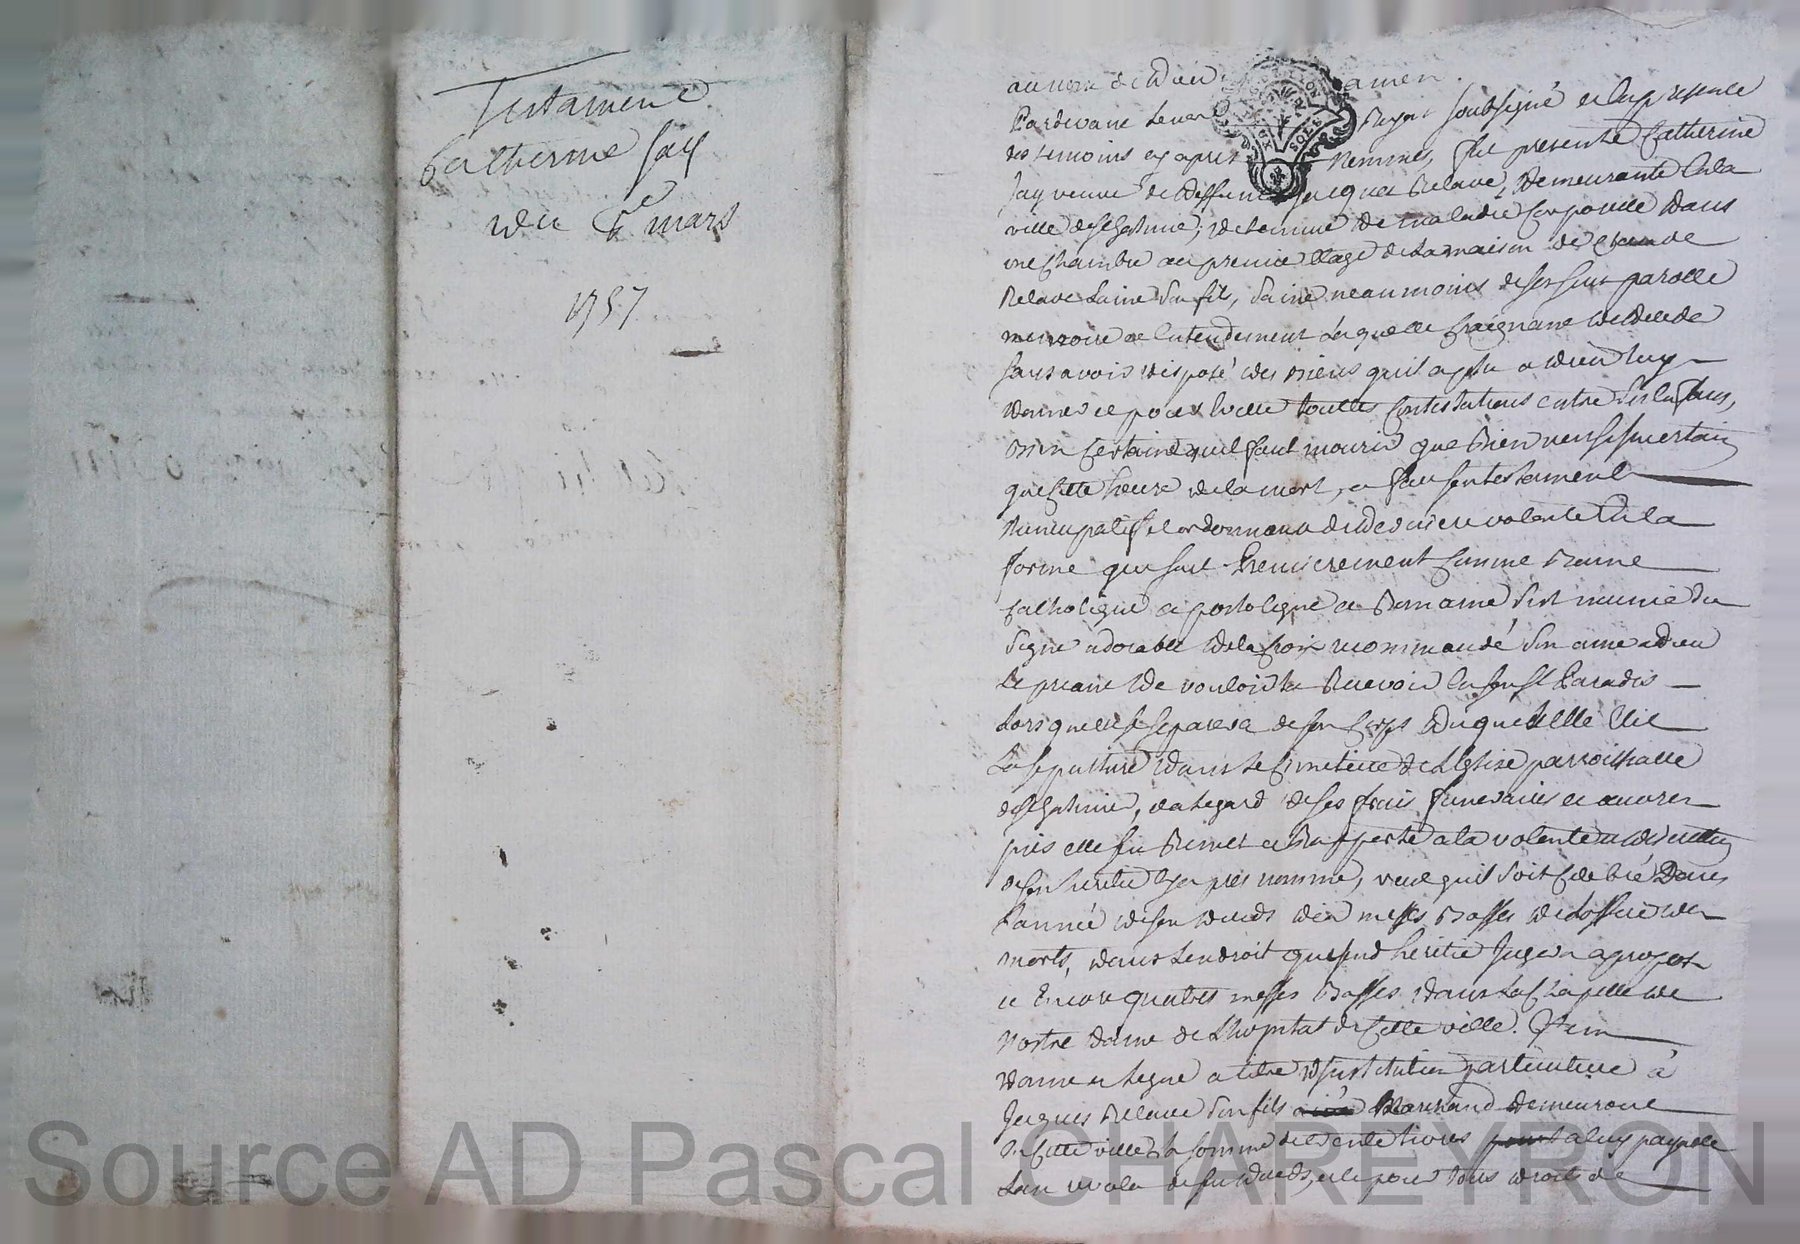 Testament
Catherine Jay
du 5e mars
1757
au nom de dieu amen.
Pardevant le no Royal soubsigné et en presence
des temoins cy apres nommes, fut presente Catherine
Jay veuve de deffunt Jacques Relave, demeurante en la
ville de st Galmié, detenue de maladie corporelle dans
une chambre au premier etage de la maison de
Relave laine son fils, saine neanmoins de ses sens parolle
memoire et entendement laquelle craignant de deceder
sans avoir disposé des biens quil a plu a dieu luy
donner et pour eviter toutes contestations entre ses enfans,
bien certaine quil faut mourir que rien nest si incertain
que cette heure de la mort, a fait son testament
nuncupatif et ordonnance de derniere volonté en la
forme que suit. Premierement comme bonne
catholique apostolique et Romaine sest munie du
signe adorable de la croix recommandé son ame a dieu
le priant de vouloir la recevoir en son st Paradis
lorsquelle se separera de son corps duquel elle elit
la sepulture dans le cimetiere de l'Eglise parroissialle
de st Galmié, et a legard de ses frais funeraires et œuvres
pies elle sen remet et rapporte a la volonté et discretion
de son heritier cy apres nommé, veut quil soit celebré dans
l'année de son deceds dix messes basses de loffice des
morts, dans lendroit que sond heritier jugera apropos
et encore quatres messes basses dans la chapelle de
nostre dame de L'hopital de cette ville. Item
donne et legue a titre d'institution particuliere à
Jacques Relave son fils marchand demeurant
en cette ville la somme de trente livres a luy payable
lan revolu de son deceds, et ce pour tous droits de
Source AD Pascal CHAREYRON